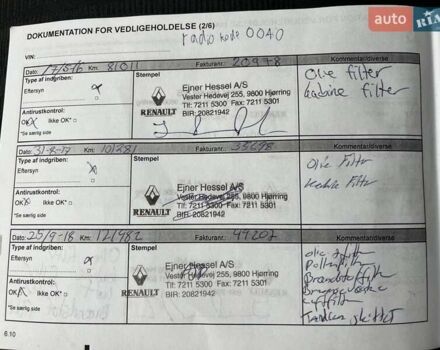 auto RIA
DOKUMENTATION FOR VEDLIGEHOLDELSE (2/6)
radio kode 0040
VIN:
Dato: 17/5/6 Km: 81011 Fakturanr.: 20978 Kommentar/diverse
Type af indgriben:
Eftersyn x
Antirustkontrol:
OK x Ikke OK*
*Se særlig side
Stempel
RENAULT
Ejner Hessel A/S
Vester Hedevej 255, 9800 Hjørring
Tlf: 7211 5300 Fax: 7211 5301
BIR: 20821942
Olie filter
Kabine filter
Dato: 31-8-17 Km: 101281 Fakturanr.: 33698 Kommentar/diverse
Type af indgriben:
Eftersyn x
Antirustkontrol:
OK x Ikke OK*
*Se særlig side
Stempel
RENAULT
Ejner Hessel A/S
Vester Hedevej 255, 9800 Hjørring
Tlf: 7211 5300 Fax: 7211 5301
BIR: 20821942
Olie Filter
Kabine Filter
Dato: 25/9-18 Km: 121982 Fakturanr.: 49207 Kommentar/diverse
Type af indgriben:
Eftersyn x
Antirustkontrol:
OK x Ikke OK*
*Se særlig side
Stempel
RENAULT
Ejner Hessel A/S
Vester Hedevej 255, 9800 Hjørring
Tlf: 7211 5300 Fax: 7211 5301
BIR: 20821942
olie filter
Pollenfilter
Brændstoffilter
Bremsevæske
Luftfilter
skiftet
6.10